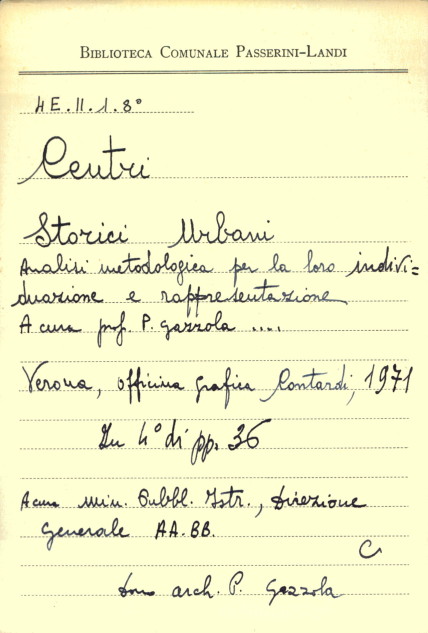 BIBLIOTECA COMUNALE PASSERINI-LANDI
4E.II.1.8°
Centri
Storici Urbani
Analisi metodologica per la loro indivi=
duazione e rappresentazione
A cura prof. P. Gazzola ....
Verona, Officina grafica Contardi, 1971
In 4° di pp. 36
A cura Min. Pubbl. Istr., Direzione
Generale AA.BB.
C
Dono arch. P. Gazzola